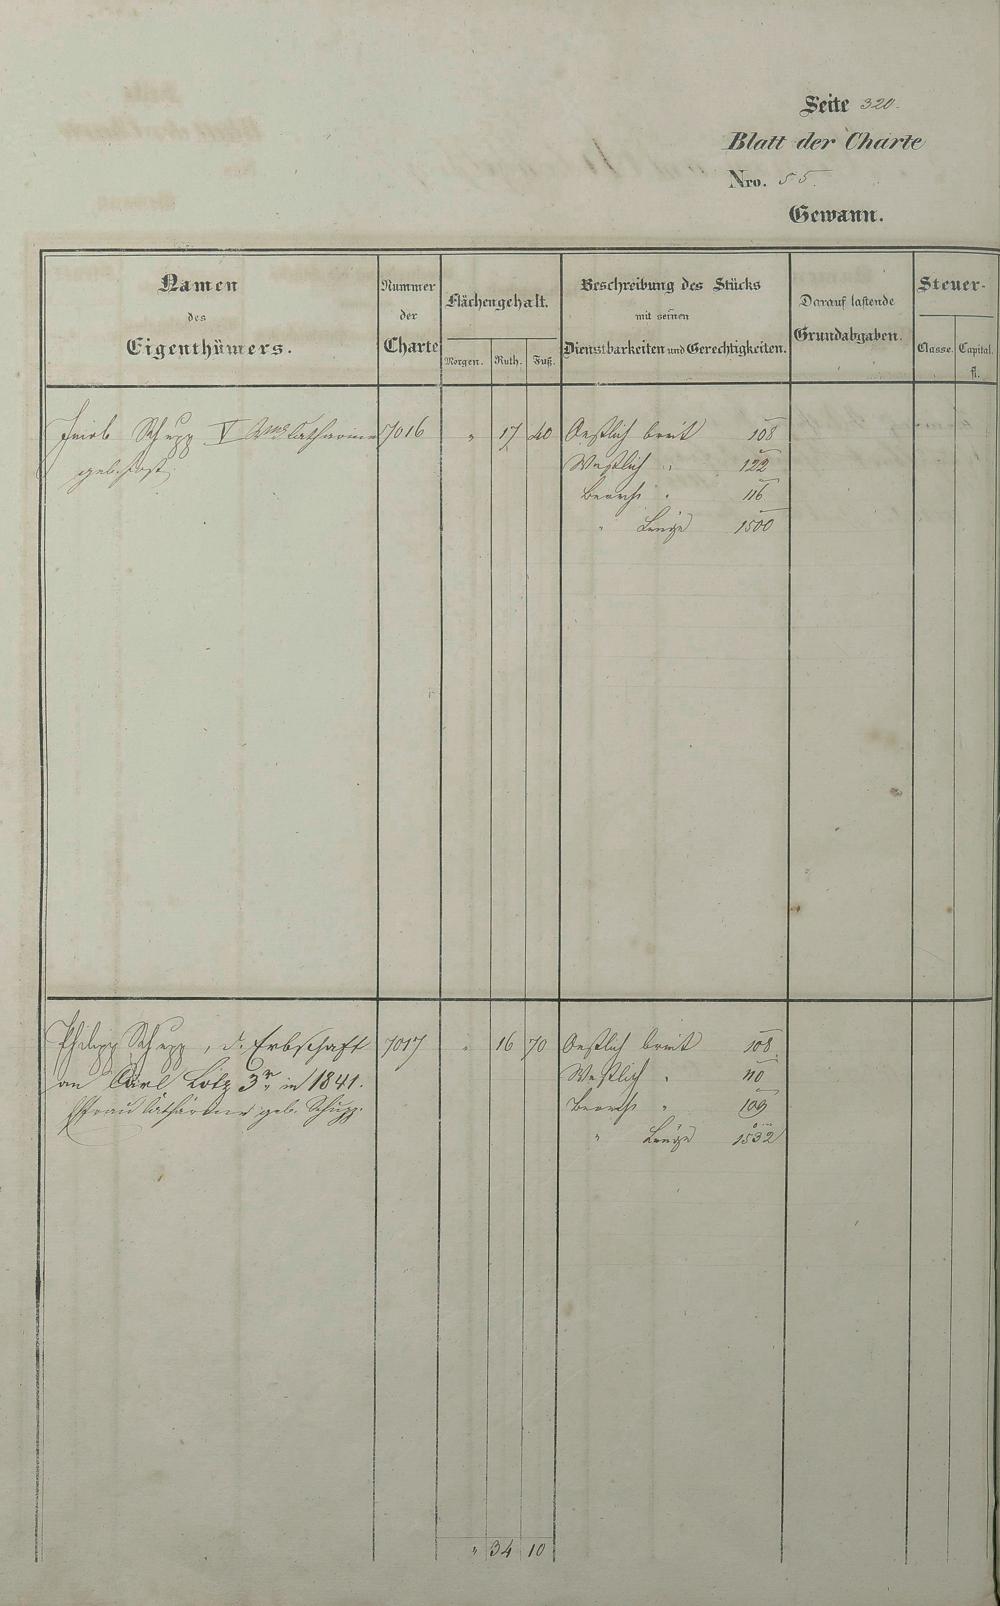 Seite 320.
Blatt der Charte
Nro. 55.
Gewann.
Namen des Eigenthümers.
Nummer der Charte
Flächengehalt.
Morgen. Ruth. Fuß.
Beschreibung des Stücks mit seinen Dienstbarkeiten und Gerechtigkeiten.
Darauf lastende Grundabgaben.
Steuer-
Classe. Capital. fl.
Jacob Schupp V Wwe Catharine 7016 " 17 40 Oestlich breit 108
geb. Jost. Westlich " 122
" 116
" Länge 1500
Philipp Schupp, d. Erbschaft 7017 " 16 70 Oestlich breit 108
an Carl Lotz 3r in 1841. Westlich " 110
Ehefrau Catharine geb. Schupp. " 109
" Länge 1532
" 34 10